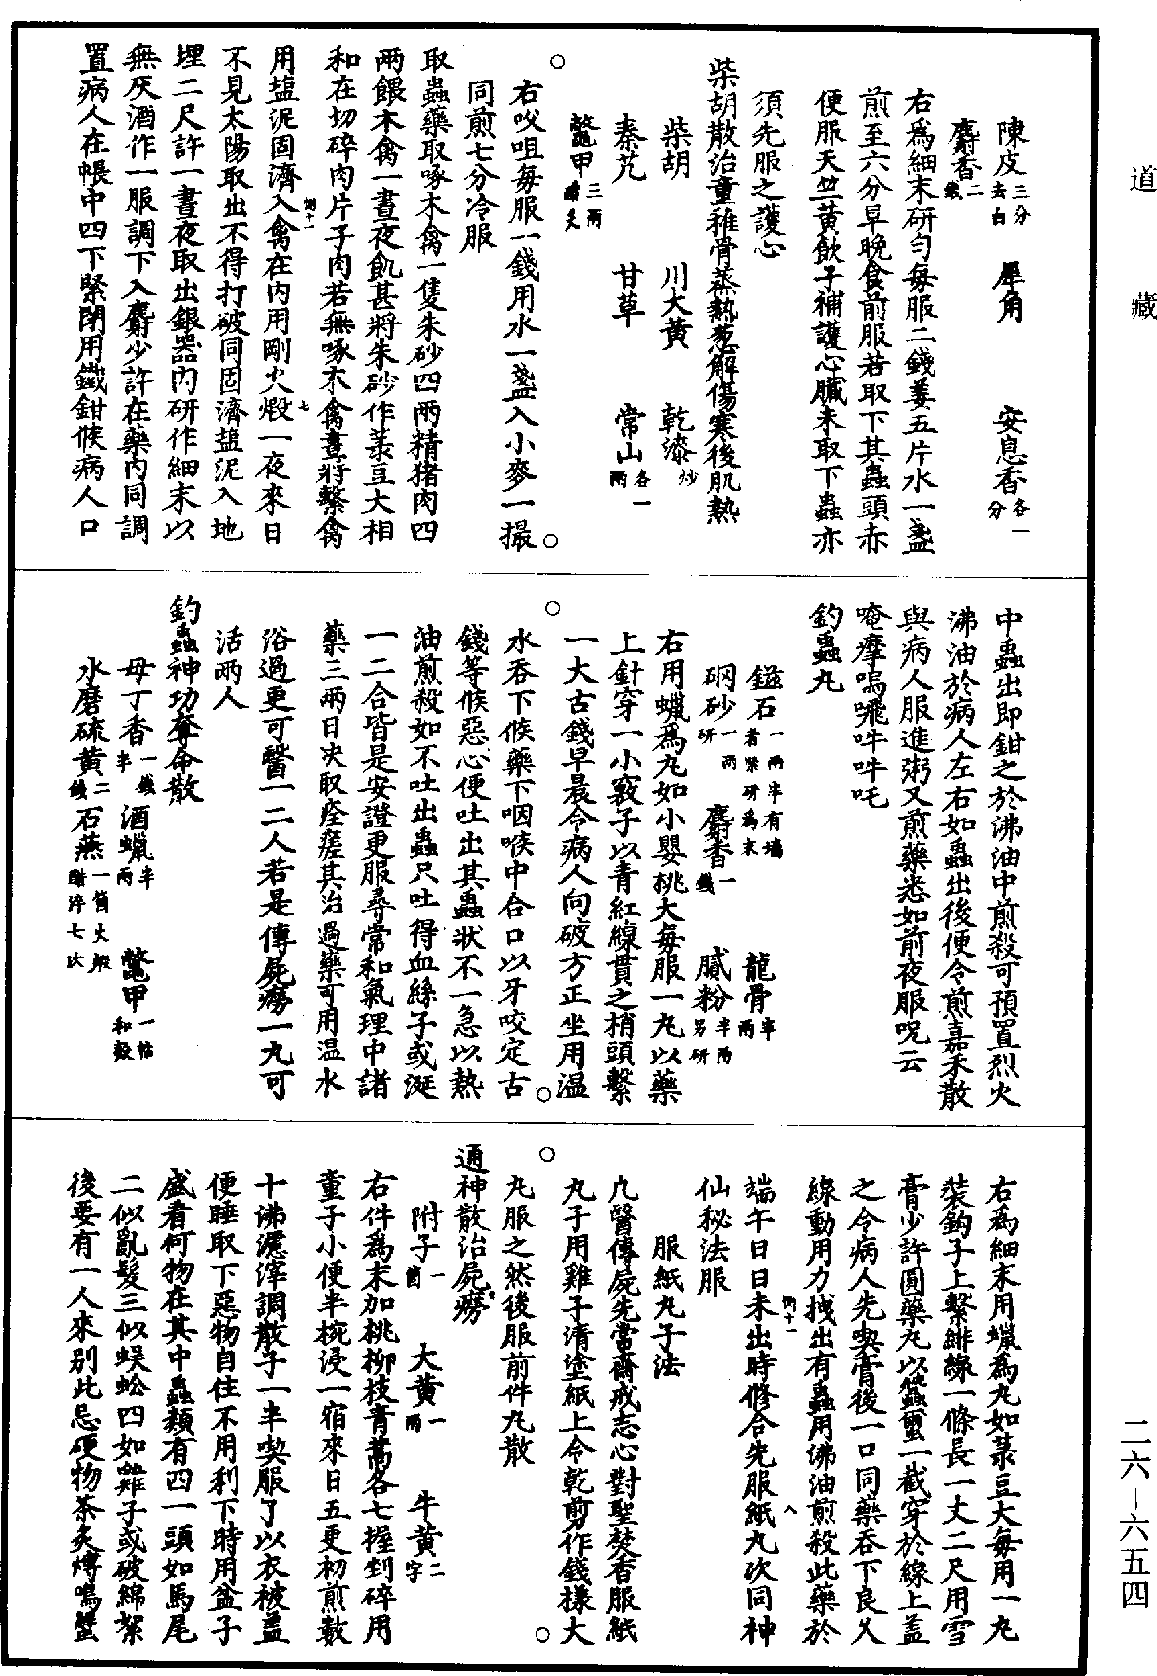 道藏
陳皮三分去白　犀角　安息香各一分
麝香二錢
右爲細末研勻每服二錢姜五片水一盞
煎至六分早晚食前服若取下其蟲頭赤
便服天竺黃飲子補護心臟未取下蟲亦
須先服之護心
柴胡散治童稚骨蒸熱葱解傷寒後肌熱
柴胡　川大黃　乾漆炒
秦艽　甘草　常山各一兩
鼈甲三兩醋炙
右㕮咀每服一錢用水一盞入小麥一撮
同煎七分冷服
取蟲藥取啄木禽一隻朱砂四兩精猪肉四
兩餵木禽一晝夜飢甚將朱砂作菉豆大相
和在切碎肉片子肉若無啄木禽晝將繫禽
用塩泥固濟入禽在內用剛火煅一夜來日
不見太陽取出不得打破同固濟塩泥入地
埋二尺許一晝夜取出銀器內研作細末以
無灰酒作一服調下入麝少許在藥內同調
置病人在帳中四下緊閉用鐵鉗候病人口
中蟲出即鉗之於沸油中煎殺可預置烈火
沸油於病人左右如蟲出後便令煎嘉禾散
與病人服進粥又煎藥悉如前夜服呪云
唵摩嗚囇吽吽吒
釣蟲丸
磁石一兩半有墙者緊研爲末　龍骨半兩
硇砂一兩研　麝香一錢　膩粉半兩另研
右用蠟爲丸如小嬰桃大每服一丸以藥
上針穿一小竅子以青紅線貫之梢頭繫
一大古錢早晨令病人向破方正坐用温
水吞下候藥下咽喉中合口以牙咬定古
錢等候惡心便吐出其蟲狀不一急以熱
油煎殺如不吐出蟲只吐得血絲子或涎
一二合皆是安證更服尋常和氣理中諸
藥三兩日次取痊瘥其治過藥可用温水
浴過更可醫一二人若是傳屍癆一丸可
活兩人
釣蟲神功奪命散
母丁香一錢半　酒蠟半兩　鼈甲一帖和殼
水磨硫黃二錢　石燕一箇火煅醋淬七次
右爲細末用蠟爲丸如菉豆大每用一丸
裝鈎子上繫緋線一條長一丈二尺用雪
膏少許圓藥丸以蠶蠒一截穿於線上蓋
之令病人先喫膏後一口同藥吞下良久
線動用力拽出有蟲用沸油煎殺此藥於
端午日日未出時修合先服紙丸次同神
仙秘法服
服紙丸子法
凡醫傳屍先當齋戒志心對聖焚香服紙
丸子用雞子清塗紙上令乾剪作錢樣大
丸服之然後服前件丸散
通神散治屍癆
附子一箇　大黃一兩　牛黃二字
右件爲末加桃柳枝青蒿各七握剉碎用
童子小便半椀浸一宿來日五更初煎數
十沸濾滓調散子一半喫服了以衣被蓋
便睡取下惡物自住不用利下時用盆子
盛看何物在其中蟲類有四一頭如馬尾
二似亂髮三似蜈蚣四如雞子或破綿絮
後要有一人來別此忌硬物茶炙煿鳴蟹
二六－六五四